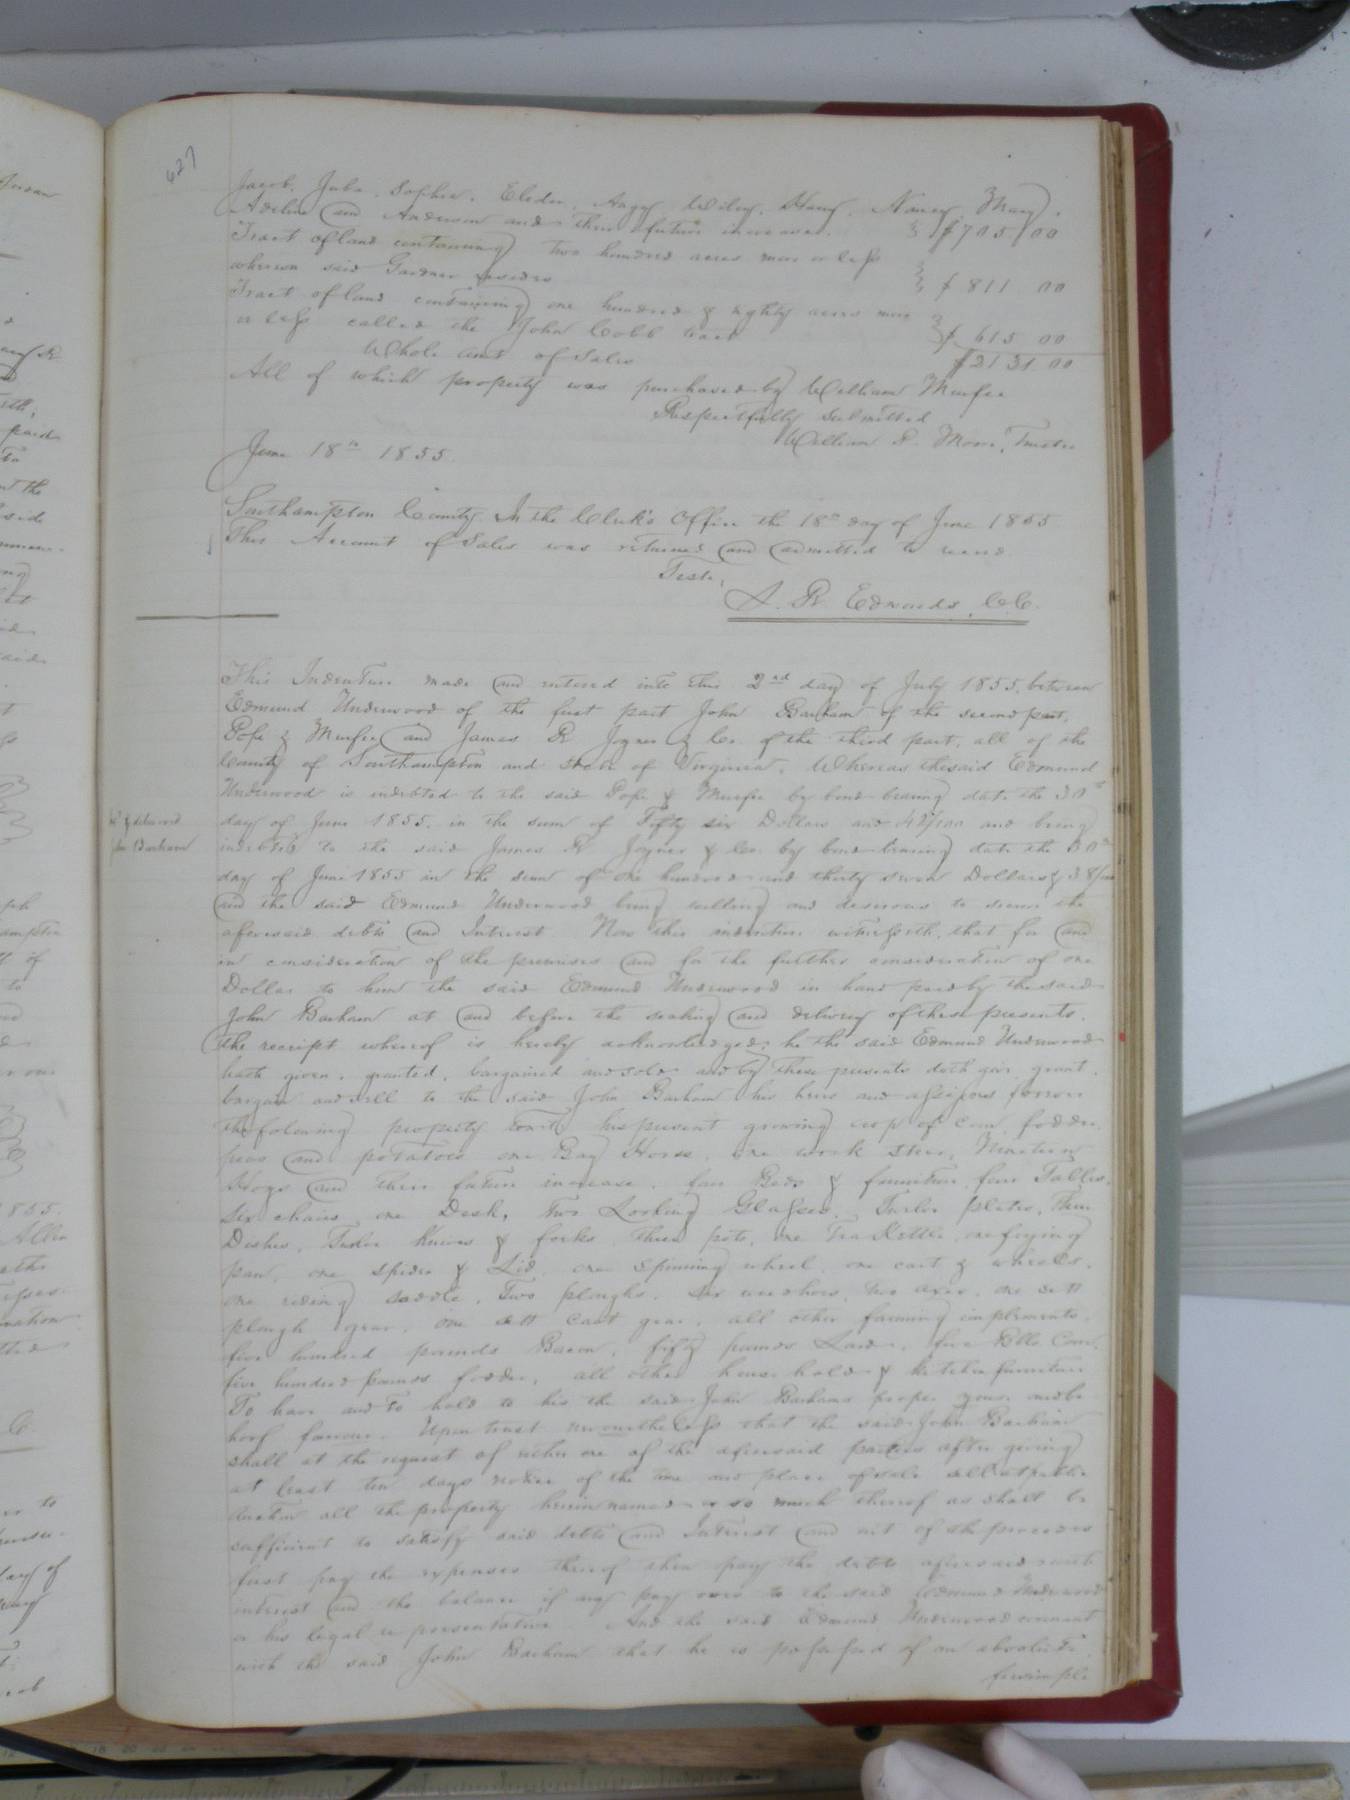 627
Jacob, Juba, Sophia, Elsder, Aggy, Wiley, Harry, Nancy, Mary,
Adeline and Anderson and their future increase. $705 00
Tract of land containing two hundred acres more or less
whereon said Gardner resides $ 811 00
Tract of land containing one hundred & eighty acres more
or less called the John Cobb tract $ 615 00
Whole amt of Sales $2131 00
All of which property was purchased by William Murfee
Respectfully submitted
William P. Moore, Trustee
June 18th 1855.
Southampton County. In the Clerk's Office the 18th day of June 1855
This Account of Sales was returned and admitted to record
Teste,
L. R. Edwards, C.C.
This Indenture made and entered into this 2nd day of July 1855, between
Edmund Underwood of the first part John Barham of the second part,
Pope & Murfee and James R Joyner & Co. of the third part, all of the
County of Southampton and State of Virginia. Whereas the said Edmund
Underwood is indebted to the said Pope & Murfee by bond bearing date the 30th
day of June 1855. in the sum of Fifty six Dollars and 42/100 and being
& delivered
John Barham
indebted to the said James R Joyner & Co. by bond bearing date the 30th
day of June 1855 in the sum of one hundred and thirty seven Dollars & 38/100
and the said Edmund Underwood being willing and desirous to secure the
aforesaid debts and Interest. Now this indenture witnesseth, that for and
in consideration of the premises and for the further consideration of one
Dollar to him the said Edmund Underwood in hand paid by the said
John Barham at and before the sealing and delivery of these presents.
the receipt whereof is hereby acknowledged: he the said Edmund Underwood
hath given, granted, bargained and sold and by these presents doth give, grant,
bargain and sell to the said John Barham his heirs and assigns forever
the folowing property towit his present growing crop of corn, fodder,
peas and potatoes one Bay Horse, one work steer, Nineteen
Hogs and their future increase, four Beds & furniture, four Tables,
six chairs, one Desk, two Looking Glasses, Twelve plates, Three
Dishes, Twelve knives & forks, three pots, one Tea Kettle, one frying
pan, one spider & Lid, one Spinning wheel, one cart & wheels,
one riding saddle, Two ploughs, six weehoes, two axes, one sett
plough gear, one sett cart gear, all other farming implements,
five hundred pounds Bacon, fifty pounds Lard, five Bbls Corn,
five hundred pounds fodder, all other house hold & kitchen furniture
To have and to hold to his the said John Barhams proper use and be
hoof forever. Upon trust nevertheless that the said John Barham
shall at the request of either one of the aforesaid parties after giving
at least ten days notice of the time and place of sale sell at public
auction all the property herein named or so much thereof as shall be
sufficient to satisfy said debts and Interest and out of the proceeds
first pay the expenses thereof then pay the debts aforesaid with
interest and the balance if any pay over to the said Edmund Underwood
or his legal representative. And the said Edmund Underwood covenant
with the said John Barham that he is possessed of an absolute
feesimple